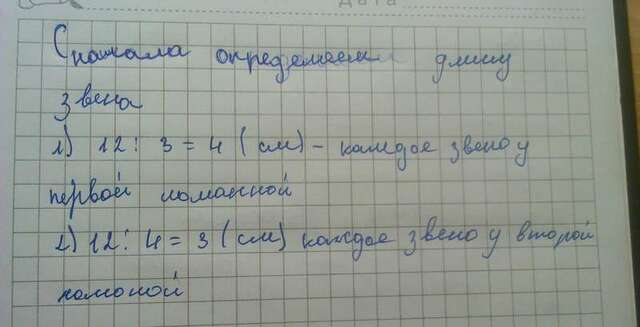 дата
Сначала определяем длину
звена
1) 12 : 3 = 4 (см) - каждое звено у
первой ломанной
2) 12 : 4 = 3 (см) каждое звено у второй
ломоной